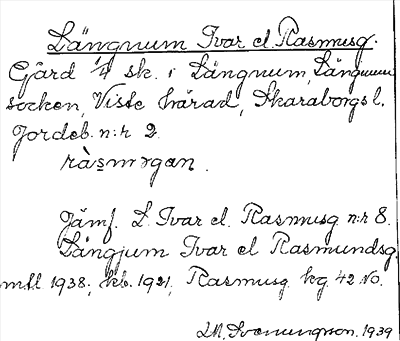 Längnum Tvar el. Rasmusg.
Gård 1/4 sk. i Längnum, Längnum
socken, Viste härad, Skaraborgs l.
Jordeb. n:r 2.
ràsmәgan.
Jämf. L. Tvar el. Rasmusg n:r 8.
Långjum Tvar el Rasmundsg.
mtl 1938; kb. 1921, Rasmusg kg. 42 No.
J.M. Svenungson. 1939